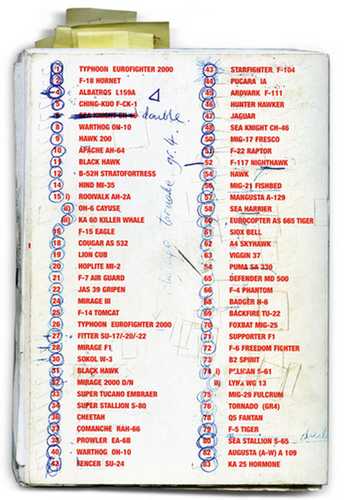 1 TYPHOON EUROFIGHTER 2000
2 F-18 HORNET
4 ALBATROS L159A
5 CHING-KUO F-CK-1
6 SEA KNIGHT CH double
8 WARTHOG ON-10
9 HAWK 200
10 APACHE AH-64
11 BLACK HAWK
12 B-52H STRATOFORTRESS
14 HIND MI-35
15 i) ROOIVALK AH-2A
ii) OH-6 CAYUSE
iii) KA 60 KILLER WHALE
16 F-15 EAGLE
18 COUGAR AS 532
19 LION CUB
20 HOPLITE MI-2
21 F-7 AIR GUARD
22 JAS 39 GRIPEN
24 MIRAGE III
25 F-14 TOMCAT
26 TYPHOON EUROFIGHTER 2000
27 FITTER SU-17/-20/-22
28 MIRAGE F1
30 SOKOL W-3
31 BLACK HAWK
32 MIRAGE 2000 D/N
33 SUPER TUCANO EMBRAER
SUPER STALLION S-80
36 CHEETAH
37 COMANCHE RAH-66
38 PROWLER EA-6B
40 WARTHOG OH-10
42 FENCER SU-24
43 STARFIGHTER F-104
44 PUCARA IA
45 ARDVARK F-111
46 HUNTER HAWKER
47 JAGUAR
48 SEA KNIGHT CH-46
50 MIG-17 FRESCO
51 F-22 RAPTOR
52 F-117 NIGHTHAWK
54 HAWK
56 MIG-21 FISHBED
57 MANGUSTA A-129
58 SEA HARRIER
60 EUROCOPTER AS 665 TIGER
61 SIOX BELL
62 A4 SKYHAWK
63 VIGGIN 37
64 PUMA SA 330
65 DEFENDER MD 500
66 F-4 PHANTOM
68 BADGER H-6
69 BACKFIRE TU-22
70 FOXBAT MIG-25
71 SUPPORTER F1
F-6 FREEDOM FIGHTER
73 B2 SPIRIT
74 i) PELICAN S-61
ii) LYNX WG 13
75 MIG-29 FULCRUM
76 TORNADO (GR4)
78 Q5 FANTAN
79 F-5 TIGER
80 SEA STALLION S-65
82 AUGUSTA (A-W) A 109
83 KA 25 HORMONE